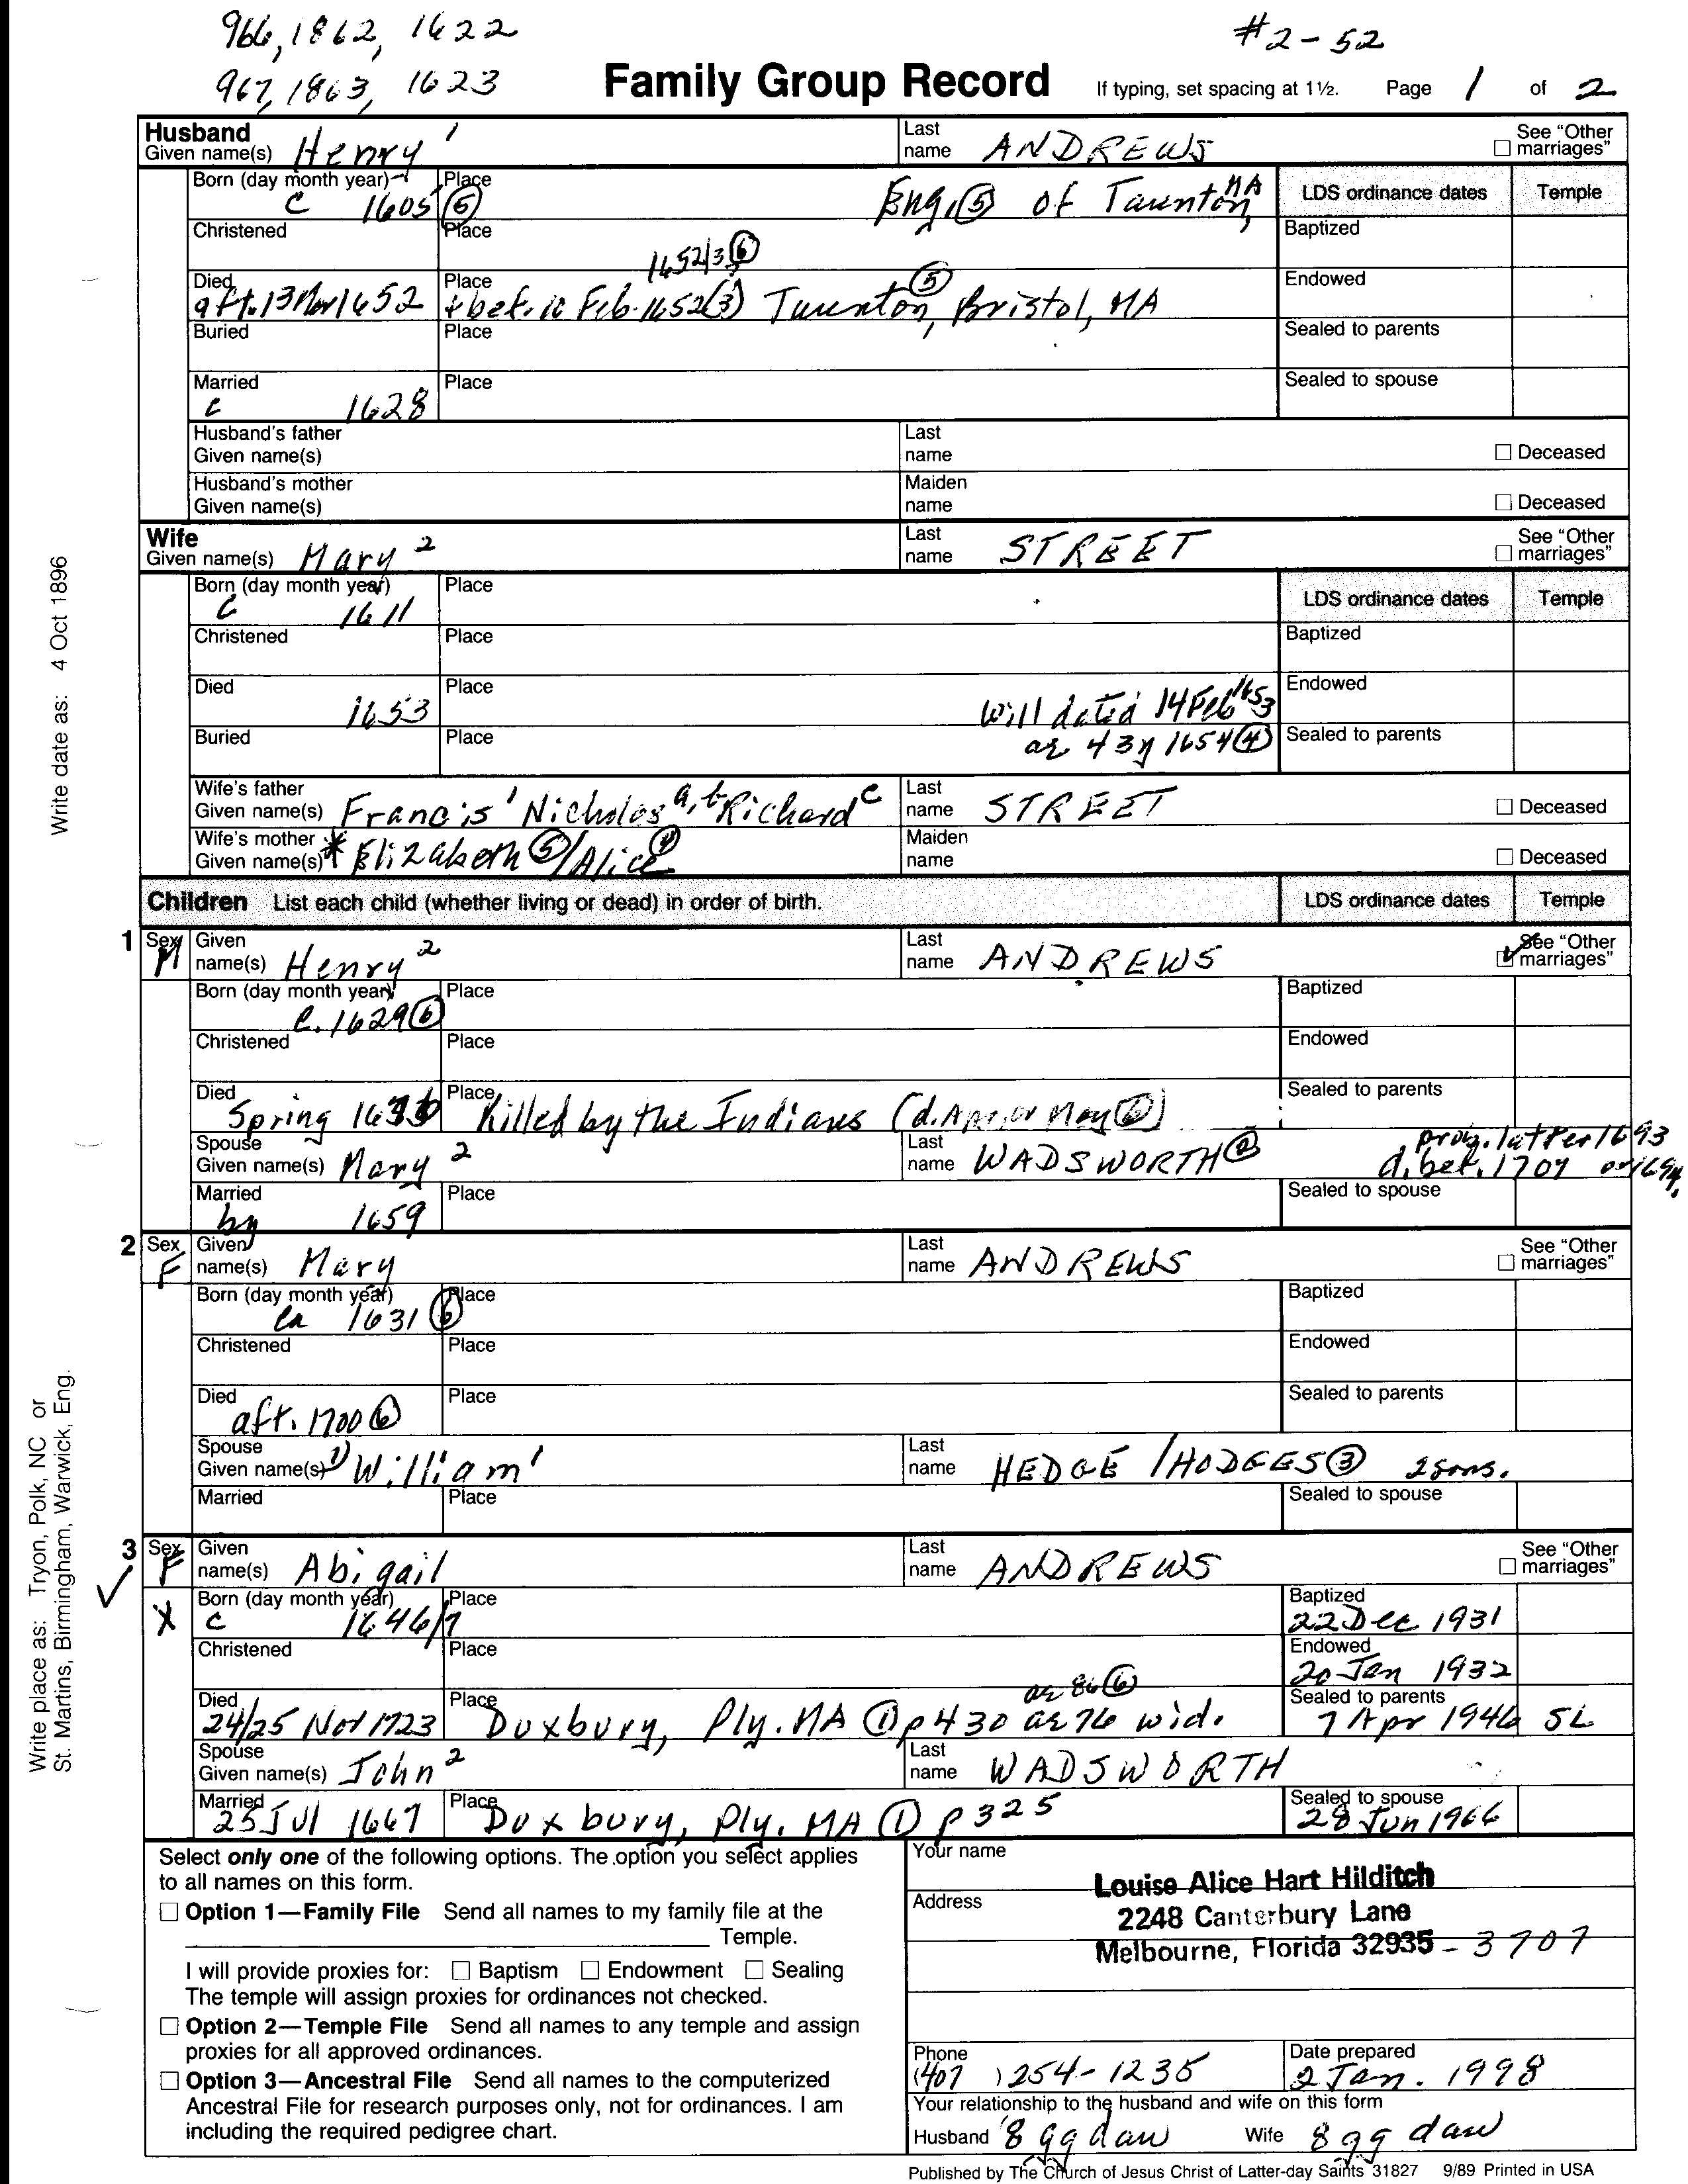 966, 1862, 1622
#2-52
967, 1863, 1623
Family Group Record
If typing, set spacing at 1½. Page 1 of 2
Husband
Given name(s) Henry 1
Last name ANDREWS
☐ See "Other marriages"
Born (day month year) c 1605 ⑤
Place Eng. ⑤ of Taunton, MA
LDS ordinance dates Temple
Christened
Place
Baptized
1652/3 ⑥
Died aft. 13 Mar 1652
Place & bet. 10 Feb. 1652(3) Taunton ⑤, Bristol, MA
Endowed
Buried
Place
Sealed to parents
Married c 1628
Place
Sealed to spouse
Husband's father
Given name(s)
Last name
☐ Deceased
Husband's mother
Given name(s)
Maiden name
☐ Deceased
Wife
Given name(s) Mary 2
Last name STREET
☐ See "Other marriages"
Born (day month year) c 1611
Place
LDS ordinance dates Temple
Christened
Place
Baptized
Died 1653
Place will dated 14 Feb 1653
Endowed
Buried
Place ag 43y 1654 ④
Sealed to parents
Wife's father
Given name(s) Francis 1 Nicholas a, b Richard c
Last name STREET
☐ Deceased
Wife's mother
Given name(s) * Elizabeth ⑤/Alice ④
Maiden name
☐ Deceased
Children List each child (whether living or dead) in order of birth.
LDS ordinance dates Temple
1 Sex M
Given name(s) Henry 2
Last name ANDREWS
☑ See "Other marriages"
Born (day month year) c. 1629 ⑥
Place
Baptized
Christened
Place
Endowed
Died Spring
Place Killed by the Indians (d. Apr. or May ⑥)
Sealed to parents
Spouse
Given name(s) Mary 2
Last name WADSWORTH ②
prob. latter 1693
d. bet. 1709 or 1694.
Married by 1659
Place
Sealed to spouse
2 Sex F
Given name(s) Mary
Last name ANDREWS
☐ See "Other marriages"
Born (day month year) ca 1631 ⑥
Place
Baptized
Christened
Place
Endowed
Died aft. 1700 ⑥
Place
Sealed to parents
Spouse
Given name(s) 1) William 1
Last name HEDGE / HODGES ③ 2 sons.
Married
Place
Sealed to spouse
3 Sex F
Given name(s) Abigail
Last name ANDREWS
☐ See "Other marriages"
✓ X
Born (day month year) c 1646/7
Place
Baptized 22 Dec 1931
Christened
Place
Endowed 20 Jan 1932
ag 86 ⑥
Died 24/25 Nov 1723
Place Duxbury, Ply. MA ① p 430 ag 76 wid.
Sealed to parents 7 Apr 1946 SL
Spouse
Given name(s) John 2
Last name WADSWORTH
Married 25 Jul 1667
Place Duxbury, Ply. MA ① p 325
Sealed to spouse 28 Jun 1966
Select only one of the following options. The option you select applies
to all names on this form.
☐ Option 1—Family File Send all names to my family file at the
Temple.
I will provide proxies for: ☐ Baptism ☐ Endowment ☐ Sealing
The temple will assign proxies for ordinances not checked.
☐ Option 2—Temple File Send all names to any temple and assign
proxies for all approved ordinances.
☐ Option 3—Ancestral File Send all names to the computerized
Ancestral File for research purposes only, not for ordinances. I am
including the required pedigree chart.
Your name
Louise Alice Hart Hilditch
Address
2248 Canterbury Lane
Melbourne, Florida 32935 - 3707
Phone
(407) 254-1235
Date prepared
2 Jan. 1998
Your relationship to the husband and wife on this form
Husband 8 gg dau Wife 8 gg dau
Published by The Church of Jesus Christ of Latter-day Saints 31827 9/89 Printed in USA
Write date as: 4 Oct 1896
Write place as: Tryon, Polk, NC or
St. Martins, Birmingham, Warwick, Eng.